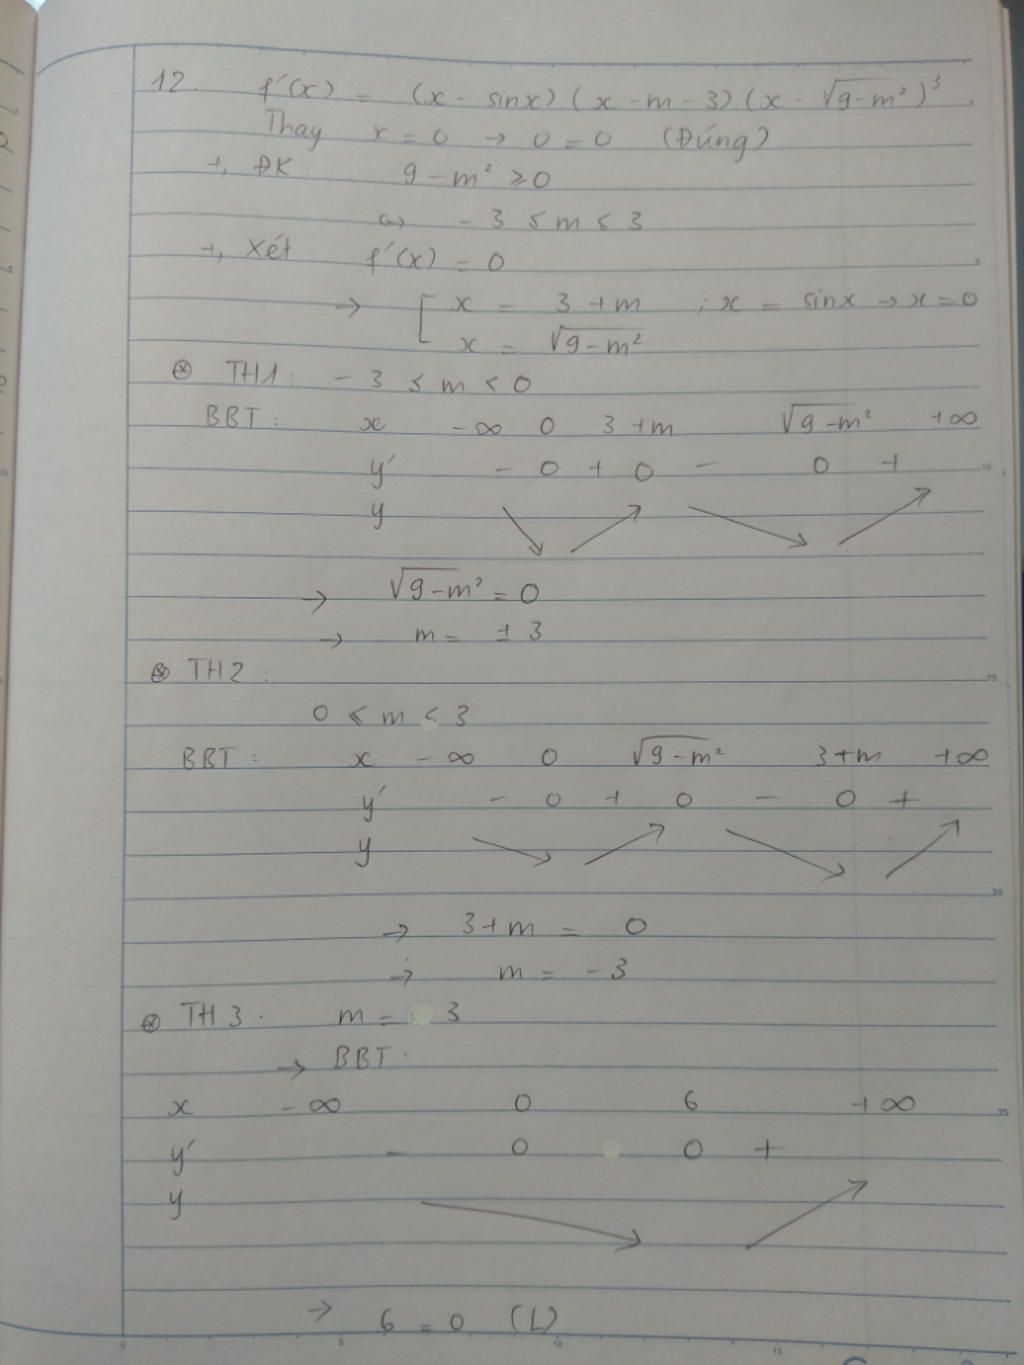 12. f'(x) = (x - sinx) (x - m - 3) (x - √(9-m²))³
Thay x = 0 → 0 = 0 (Đúng)
+, ĐK: 9 - m² ≥ 0
⇔ - 3 ≤ m ≤ 3
+, Xét f'(x) = 0
→ [ x = 3 + m ; x = sinx → x = 0
x = √(9-m²)
⊗ TH1: - 3 ≤ m < 0
BBT: x -∞ 0 3+m √(9-m²) +∞
y' - 0 + 0 - 0 +
y ↘ ↗ ↘ ↗
→ √(9-m²) = 0
→ m = ± 3
⊗ TH2:
0 < m < 3
BBT: x -∞ 0 √(9-m²) 3+m +∞
y' - 0 + 0 - 0 +
y ↘ ↗ ↘ ↗
→ 3+m = 0
→ m = -3
⊗ TH3. m = 3
→ BBT:
x -∞ 0 6 +∞
y' - 0 0 +
y ↘ ↗
→ 6 = 0 (L)